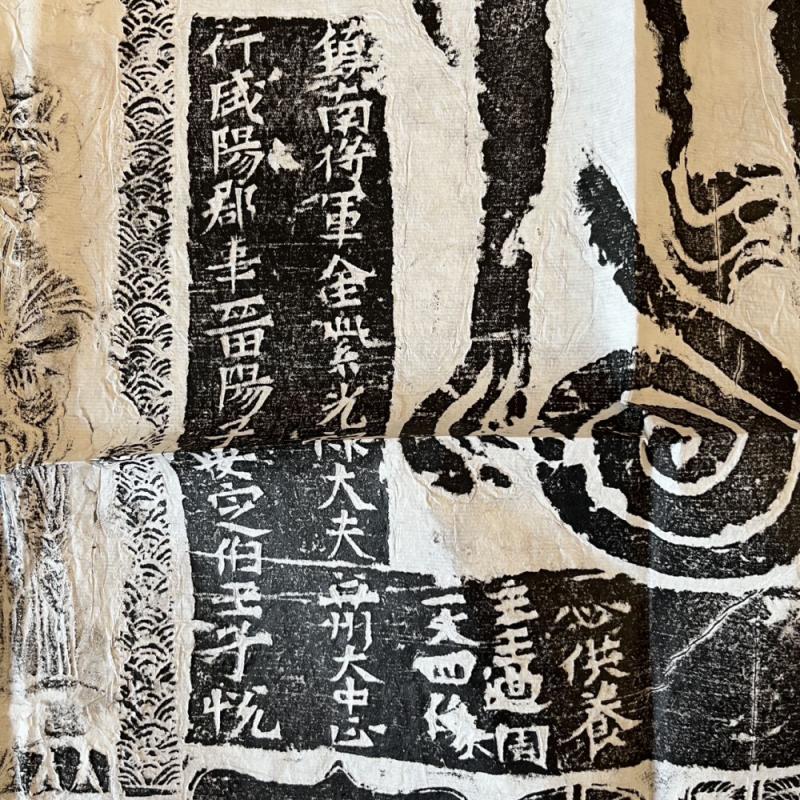 鎮南将軍金紫光祿大夫州大中正
行咸陽郡事晉陽子安定伯王子悅
天四像
主王迴
一心供養